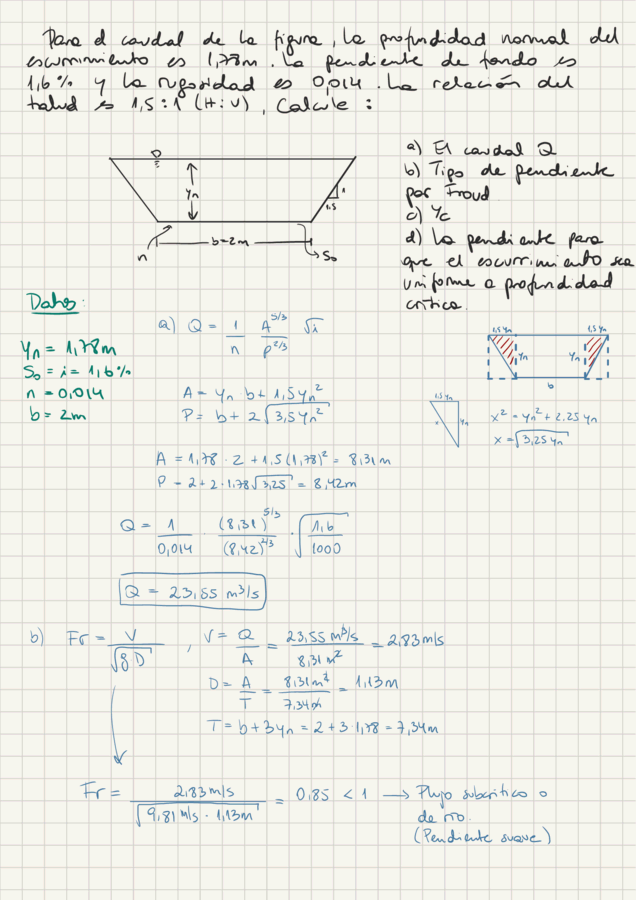 Para el caudal de la figura, la profundidad normal del
escurrimiento es 1,78m. La pendiente de fondo es
1,6% y la rugosidad es 0,014. La relación del
talud es 1,5:1 (H:V), Calcule:
a) El caudal Q
b) Tipo de pendiente
por Froud
c) Yc
d) La pendiente para
que el escurrimiento sea
uniforme a profundidad
crítica.
yn
1
1,5
n
b=2m
So
Datos:
yn = 1,78m
So = i = 1,6%
n = 0,014
b = 2m
a) Q = 1/n A^5/3 / P^2/3 √i
A = yn b + 1,5yn²
P = b + 2 √3,5yn²
1,5 yn 1,5 yn
yn yn
b
1,5 yn
x yn
x² = yn² + 2,25 yn
x = √3,25 yn
A = 1,78 · 2 + 1,5 (1,78)² = 8,31 m
P = 2 + 2 · 1,78 √3,25 = 8,42m
Q = 1/0,014 (8,31)^5/3 / (8,42)^2/3 · √1,6/1000
Q = 23,55 m³/s
b) Fr = V/√g D , V = Q/A = 23,55 m³/s / 8,31 m² = 2,83 m/s
D = A/T = 8,31m² / 7,34m = 1,13m
T = b + 3yn = 2 + 3·1,78 = 7,34m
Fr = 2,83 m/s / √9,81 m/s · 1,13m = 0,85 < 1 → Flujo subcrítico o
de río.
(Pendiente suave)